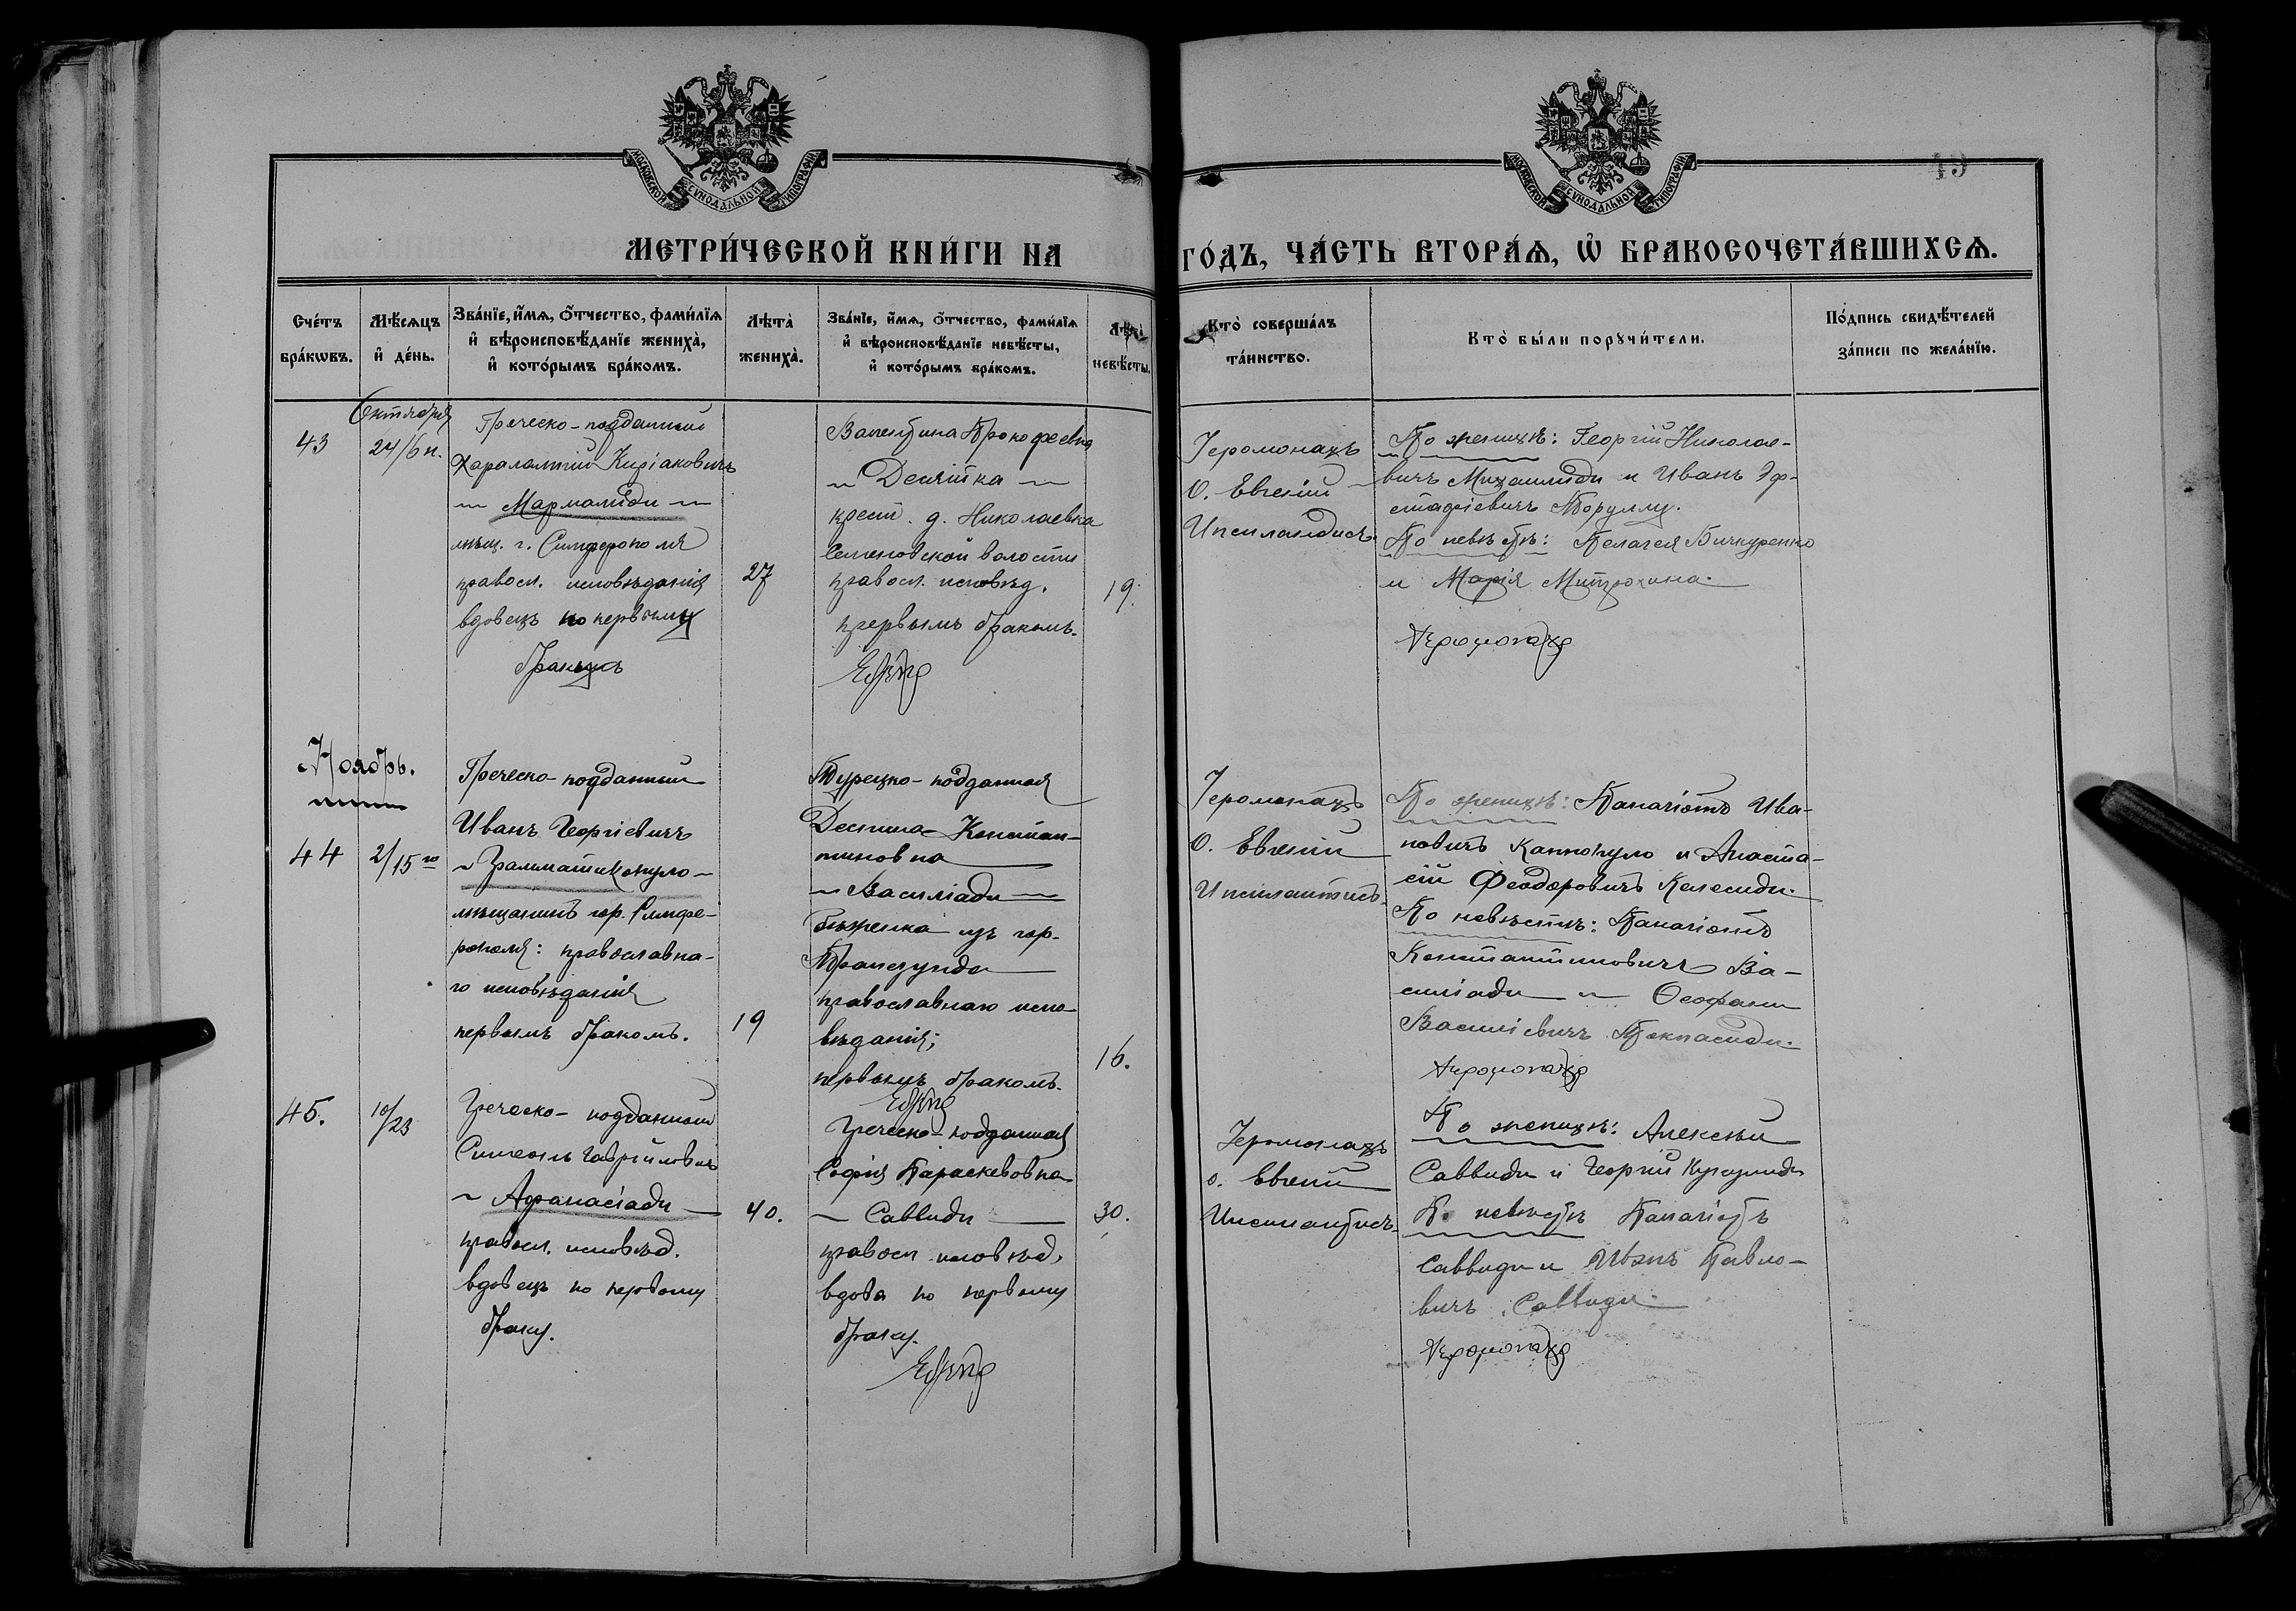 МОСКОВСКОЙ СУНОДАЛЬНОЙ ТИПОГРАФІИ
МОСКОВСКОЙ СУНОДАЛЬНОЙ ТИПОГРАФІИ
49
МЕТРИ́ЧЕСКОЙ КНИ́ГИ НА
ГО́ДЪ, ЧА́СТЬ ВТОРА́Ѧ, Ѡ БРАКОСОЧЕТА́ВШИХСѦ.
Сче́тъ
бра́кѡвъ.
Мѣ́сѧцъ
и де́нь.
Зва́нїе, и́мѧ, о́тчество, фами́лїѧ
и вѣроисповѣ́данїе жениха̀,
и кото́рымъ бра́комъ.
Лѣта̀
жениха̀.
Зва́нїе, и́мѧ, о́тчество, фами́лїѧ
и вѣроисповѣ́данїе невѣ́сты,
и кото́рымъ бра́комъ.
Лѣта̀
невѣ́сты.
Кто̀ соверша́лъ
та́инство.
Кто̀ бы́ли порꙋчи́тели.
По́дпись свидѣ́телей
за́писи по жела́нїю.
Октября
43
24/6 н.
Греческо-подданный
Харалампій Киріаковичъ
Мармалиди
мѣщ. г. Симферополя
правосл. исповѣданія
вдовецъ по первымъ
27
Валентина Прокофьевна
Десятка
крест. д. Николаевка
Семеновской волости
правосл. исповѣд.
первымъ бракомъ.
Εὐγένιος
19.
Іеромонахъ
О. Евгеній
По женихѣ: Георгій Николае-
вичъ Михаилиди и Иванъ Эф-
стафіевичъ
По невѣстѣ: Пелагея
и Марія Митрохина.
Ἱερομόναχος
Ноябрь.
44
2/15 го
Греческо-подданный
Иванъ Георгіевичъ
Грамматикопуло
мѣщанинъ гор. Симфе-
рополя: православна-
го исповѣданія
первымъ бракомъ.
19
Турецко-подданная
Деспина Констан-
тиновна
Василіади
бѣженка изъ гор.
Трапезунда
православнаго испо-
вѣданія;
первымъ бракомъ.
Εὐγένιος
16.
Іеромонахъ
О. Евгеній
Ипсилантисъ
По женихѣ: Панагіотъ Ива-
новичъ и Анаста-
сій Феодоровичъ Келесиди.
По невѣстѣ: Панагіотъ
Константиновичъ Ва-
силіади и Ѳеофанъ
Василіевичъ
Ἱερομόναχος
45.
10/23
Греческо-подданный
Симеонъ Гавріиловичъ
Афанасіади
правосл. исповѣд.
вдовецъ по первому
браку.
40.
Греческо-подданная
Софія Параскевовна
Саввиди
правосл. исповѣд.
вдова по первому
браку.
Εὐγένιος
30.
Іеромонахъ
о. Евгеній
Ипсилантисъ
По женихѣ: Алексѣй
Саввиди и Георгій
По невѣстѣ Панагіотъ
Саввиди и Иванъ Павло-
вичъ Саввиди
Ἱερομόναχος